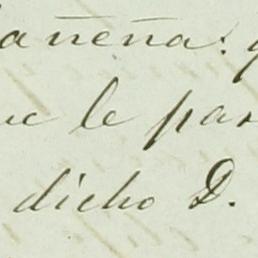 añeña:
le par
dicho D.